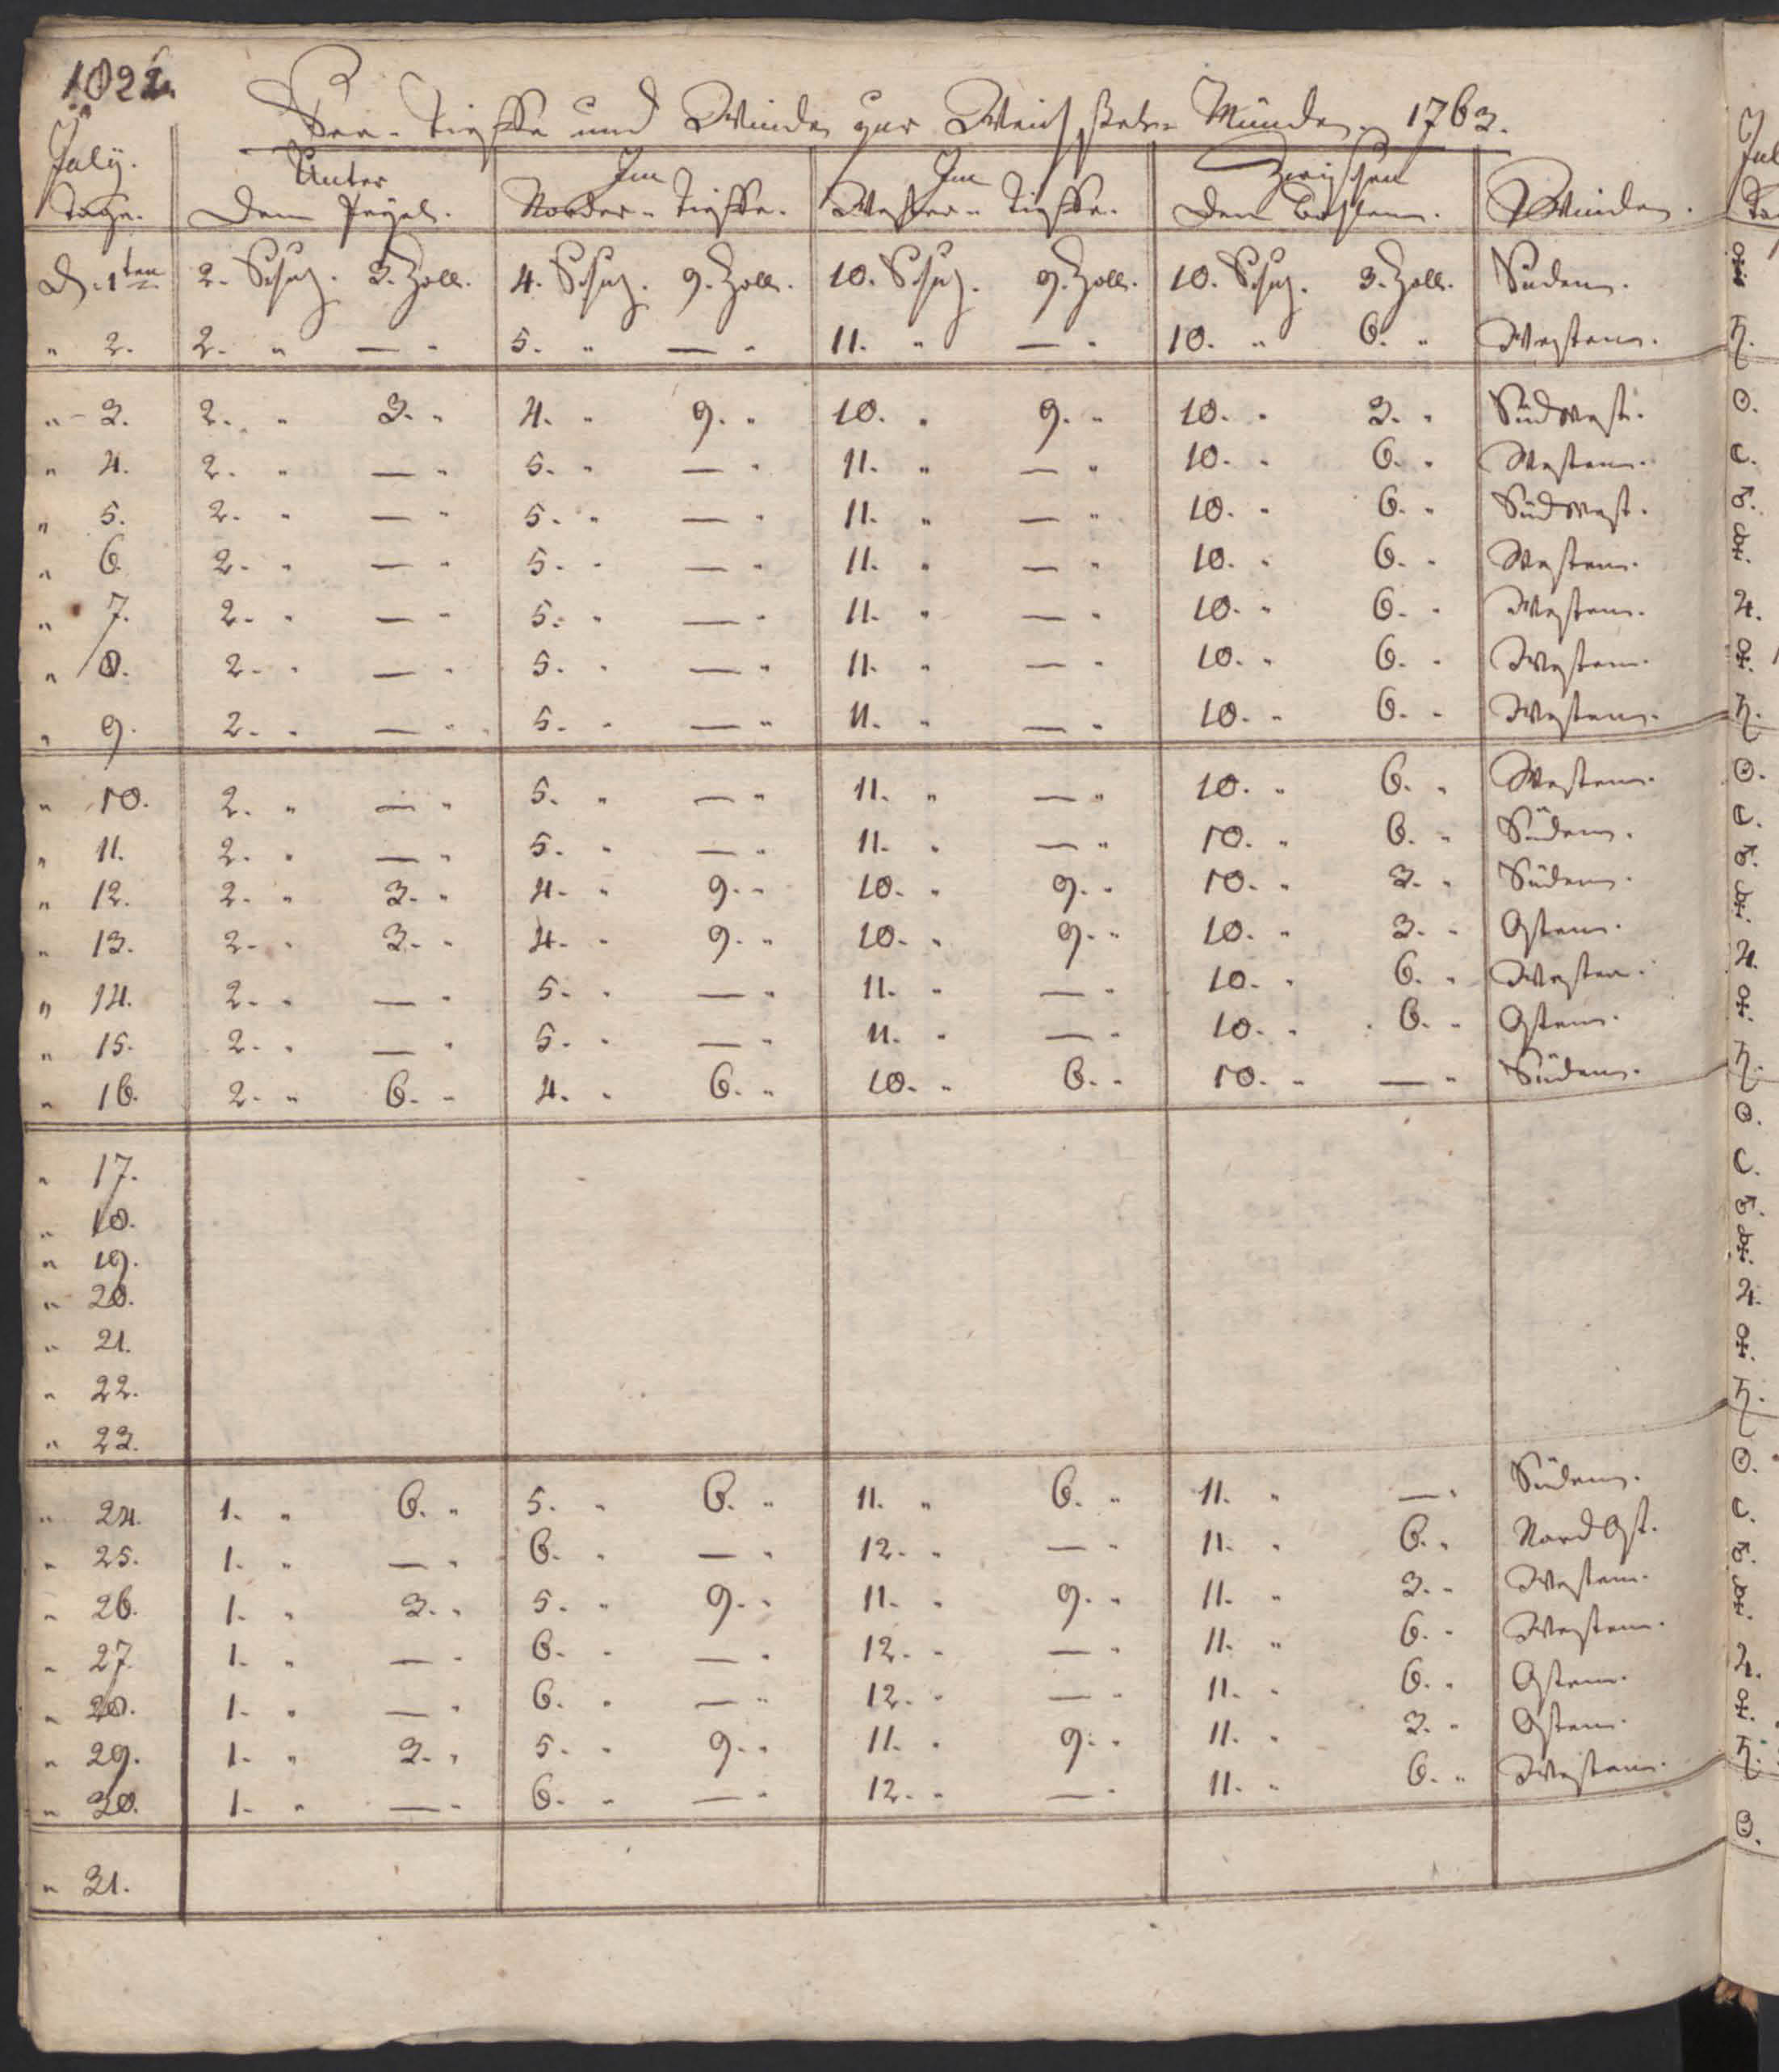 1022.
See-Tieffe und Winde zur Weichselmünde. 1763.
July. Tage. | Unter dem Pegel. | Im Norder-Tieffe. | Im Wester-Tieffe. | Zwischen den Bohlen. | Winde.
D. 1ten 2. Schuh. 3. Zoll. 4. Schuh. 9. Zoll. 10. Schuh. 9. Zoll. 10. Schuh. 3. Zoll. Süden.
" 2. 2. " — " 5. " — " 11. " — " 10. " 6. " Westen.
" 3. 2. " 3. " 4. " 9. " 10. " 9. " 10. " 3. " Südwest.
" 4. 2. " — " 5. " — " 11. " — " 10. " 6. " Westen.
" 5. 2. " — " 5. " — " 11. " — " 10. " 6. " Südwest.
" 6. 2. " — " 5. " — " 11. " — " 10. " 6. " Westen.
" 7. 2. " — " 5. " — " 11. " — " 10. " 6. " Westen.
" 8. 2. " — " 5. " — " 11. " — " 10. " 6. " Westen.
" 9. 2. " — " 5. " — " 11. " — " 10. " 6. " Westen.
" 10. 2. " — " 5. " — " 11. " — " 10. " 6. " Westen.
" 11. 2. " — " 5. " — " 11. " — " 10. " 6. " Süden.
" 12. 2. " 3. " 4. " 9. " 10. " 9. " 10. " 3. " Süden.
" 13. 2. " 3. " 4. " 9. " 10. " 9. " 10. " 3. " Osten.
" 14. 2. " — " 5. " — " 11. " — " 10. " 6. " Westen.
" 15. 2. " — " 5. " — " 11. " — " 10. " 6. " Osten.
" 16. 2. " 6. " 4. " 6. " 10. " 6. " 10. " — " Süden.
" 17.
" 18.
" 19.
" 20.
" 21.
" 22.
" 23.
" 24. 1. " 6. " 5. " 6. " 11. " 6. " 11. " — " Süden.
" 25. 1. " — " 6. " — " 12. " — " 11. " 6. " Nord Ost.
" 26. 1. " 3. " 5. " 9. " 11. " 9. " 11. " 3. " Westen.
" 27. 1. " — " 6. " — " 12. " — " 11. " 6. " Westen.
" 28. 1. " — " 6. " — " 12. " — " 11. " 6. " Osten.
" 29. 1. " 3. " 5. " 9. " 11. " 9. " 11. " 3. " Osten.
" 30. 1. " — " 6. " — " 12. " — " 11. " 6. " Westen.
" 31.